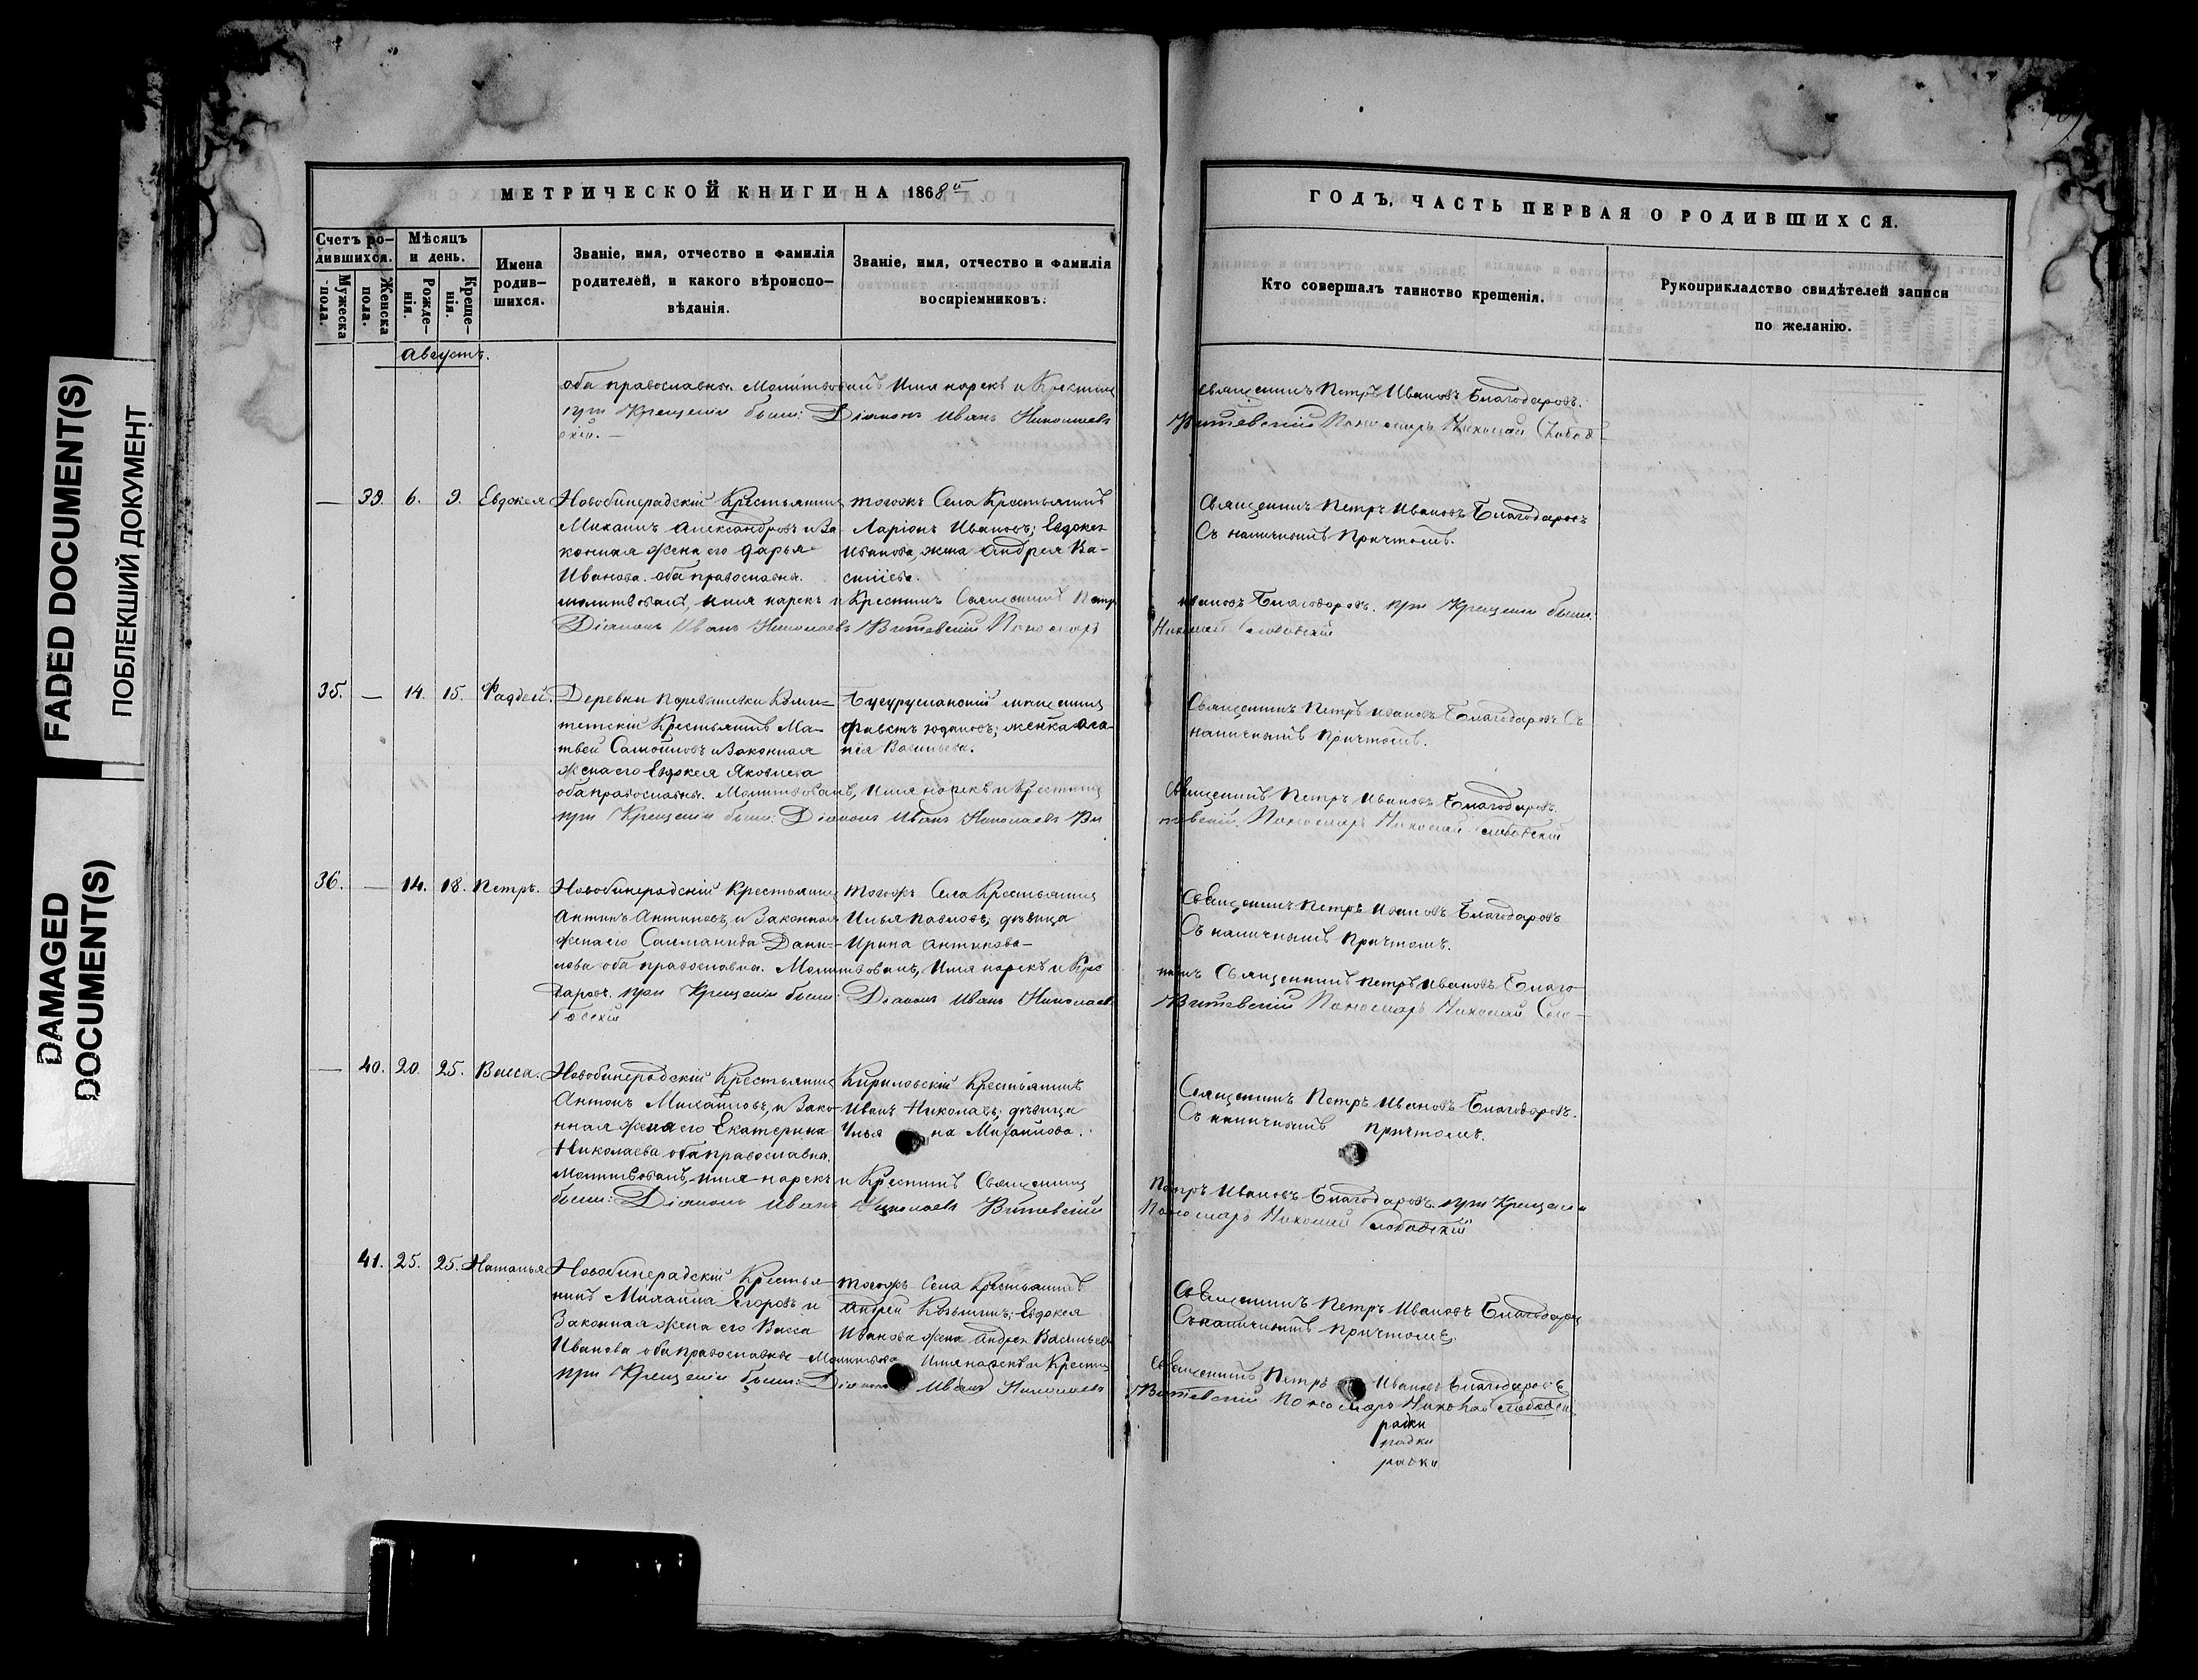 FADED DOCUMENT(S)
ПОБЛЕКШИЙ ДОКУМЕНТ
DAMAGED
DOCUMENT(S)
МЕТРИЧЕСКОЙ КНИГИ НА 1868й
Счетъ ро-
дившихся.
Мужеска
пола.
Женска
пола.
Мѣсяцъ
и день.
Рожде-
нія.
Креще-
нія.
Имена
родив-
шихся.
Званіе, имя, отчество и фамилія
родителей, и какого вѣроиспо-
вѣданія.
Званіе, имя, отчество и фамилія
воспріемниковъ.
Августъ.
оба православны. Молитвовалъ имя нарекъ и Крестилъ
при Крещеніи были: Діаконъ Иванъ Николаевъ
— 39. 6. 9. Евдокея
Новобинарадскій Крестьянинъ
Михаилъ Александровъ и За-
конная жена его Дарья
Иванова. оба православны.
молитвовалъ, имя нарекъ и Крестилъ Священникъ Петръ
Діаконъ Иванъ Николаевъ Витевскій Пономарь
тогожъ Села Крестьянинъ
Ларіонъ Ивановъ; Евдокея
Иванова, жена Андрея Ва-
сильева.
35. — 14. 15. Фаддей.
Деревни
Крестьянинъ Ма-
твей Самойловъ и Законная
жена его Евдокея Яковлева
оба православны. Молитвовалъ, имя нарекъ и Крестилъ
при Крещеніи были: Діаконъ Иванъ Николаевъ Ви
Бугурусланскій мѣщанинъ
Васильева.
36. — 14. 18. Петръ.
Новобинарадскій Крестьянинъ
Антипъ Антиповъ, и Законная
жена его Саломанида Дани-
лова оба православна. Молитвовалъ, имя нарекъ и Крес
даровъ. при Крещеніи были: Діаконъ Иванъ Николаевъ
бодскій
тогожъ Села Крестьянинъ
Илья Павловъ; дѣвица
Ирина Антипова
— 40. 20. 25. Васса.
Новобинарадскій Крестьянинъ
Антонъ Михайловъ, и Зако-
нная жена его Екатерина
Николаева оба православна.
Молитвовалъ, имя нарекъ и Крестилъ Священникъ
были: Діаконъ Иванъ Николаевъ Витевскій
Кириловскій Крестьянинъ
Иванъ Николаевъ; дѣвица
Улья на Михайлова.
41. 25. 25. Наталья
Новобинарадскій Крестья-
нинъ Михаила Егоровъ и
Законная жена его Васса
Иванова оба православны Молитвова имя нарекъ и Крестилъ
при Крещеніи были: Діаконъ Иванъ Николаевъ
тогожъ Села Крестьянинъ
Андрей Козьминъ; Евдокея
Иванова жена Андрея Васильева
ГОДЪ, ЧАСТЬ ПЕРВАЯ О РОДИВШИХСЯ.
Кто совершалъ таинство крещенія.
Рукоприкладство свидѣтелей записи
по желанію.
Священникъ Петръ Ивановъ Благодаровъ.
Витевскій Пономарь Николай Слобод-
Священникъ Петръ Ивановъ Благодаровъ
Съ наличнымъ Причтомъ.
Ивановъ Благодаровъ. при Крещеніи были:
Николай Слободскій
Священникъ Петръ Ивановъ Благодаровъ Съ
наличнымъ Причтомъ.
Священникъ Петръ Ивановъ Благодаровъ.
тевскій. Пономарь Николай Слободскій
Священникъ Петръ Ивановъ Благодаровъ
Съ наличнымъ Причтомъ.
тилъ Священникъ Петръ Ивановъ Благо-
Витевскій Пономарь Николай Сло-
Священникъ Петръ Ивановъ Благодаровъ.
Съ наличнымъ причтомъ.
Петръ Ивановъ Благодаровъ. при Крещеніи
Пономарь Николай Слободскій
Священникъ Петръ Ивановъ Благодаровъ
Съ наличнымъ причтомъ.
Священникъ Петръ Ивановъ Благодаровъ
Витевскій Пономарь Николай Слободскі